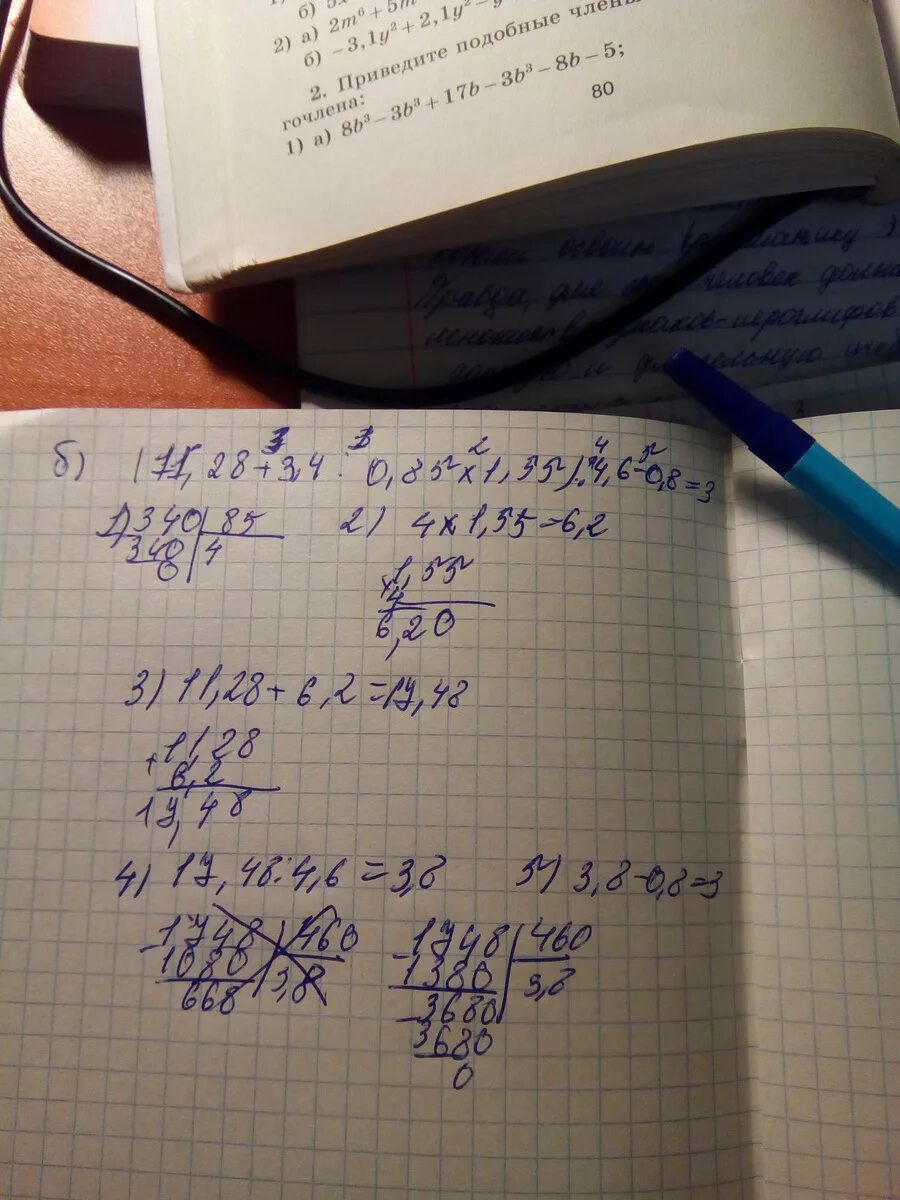 б)
2) а) 2m⁶ + 5m
б) −3,1y² + 2,1y² − y
2. Приведите подобные члены
гочлена:
1) а) 8b³ − 3b³ + 17b − 3b³ − 8b − 5;
80
Правда, человек
знаков-иероглифов
и
б) (11,28 + 3,4 : 0,85 × 1,55) : 4,6 − 0,8 = 3
3 1 2 4 5
1) 340 | 85
340 | 4
0
2) 4 × 1,55 = 6,2
1,55
× 4
6,20
3) 11,28 + 6,2 = 17,48
+ 11,28
6,2
17,48
4) 17,48 : 4,6 = 3,8
5) 3,8 − 0,8 = 3
− 1748 | 460
1080 | 3,8
668
− 1748 | 460
1380 | 3,8
− 3680
3680
0